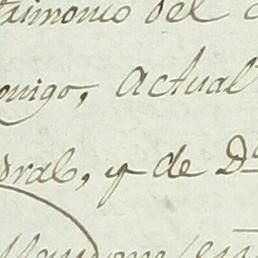 trimonio del
omigo, actual
dral, y de Dª